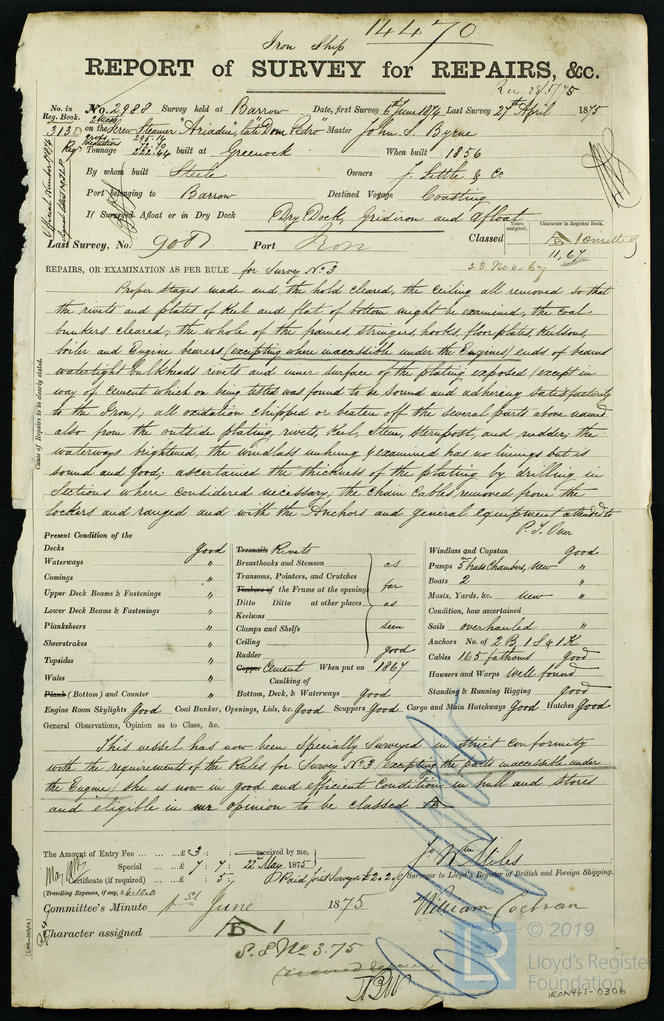 Iron Ship 14470
REPORT of SURVEY for REPAIRS, &c.
Rec 28/5/75
No. in Reg. Book. No. 2988 Survey held at Barrow Date, first Survey 6th June 1874 Last Survey 27th April 1875
313 on the Screw Steamer "Ariadne," late "Dom Pedro" Master John S. Byrne
Tonnage 222.44 built at Greenock When built 1856
By whom built Steele Owners J. Little & Co
Port belonging to Barrow Destined Voyage Coasting
If Surveyed Afloat or in Dry Dock Dry Dock, Gridiron and Afloat
Years assigned. Character in Register Book.
Last Survey, No. Port Iron Classed A 1 omitted
11,67
REPAIRS, OR EXAMINATION AS PER RULE for Survey No. 3
S.S No 3-67
Proper stages made and the hold cleared, the ceiling all removed so that
the rivets and plates of keel and flat of bottom might be examined, the coal
bunkers cleared; the whole of the frames, stringers, hooks, floorplates, keelsons,
boiler and Engine bearers (excepting where inaccessible under the Engines) ends of beams
watertight bulkheads rivets and inner surface of the plating exposed (except in
way of cement which on being tested was found to be sound and adhering satisfactorily
to the Iron), all oxidation chipped or beaten off the several parts above named
also from the outside plating, rivets, keel, stem, sternpost, and rudder, the
waterways brightened, the windlass unhung & examined has no linings but is
sound and good; ascertained the thickness of the plating by drilling in
Sections where considered necessary, the chain cables removed from the
lockers and ranged and with the Anchors and general equipment attended to
P. T. Over
Cause of Repairs to be clearly stated.
Present Condition of the
Decks Good
Waterways "
Comings "
Upper Deck Beams & Fastenings "
Lower Deck Beams & Fastenings "
Planksheers "
Sheerstrakes "
Topsides "
Wales "
Plank (Bottom) and Counter "
Treenails Rivets
Breasthooks and Stemson as
Transoms, Pointers, and Crutches
Timbers of the Frame at the openings far
Ditto Ditto at other places as
Keelsons
Clamps and Shelfs seen
Ceiling
Rudder good
Copper Cement When put on 1867
Caulking of
Bottom, Deck, & Waterways good
Windlass and Capstan Good
Pumps 3 brass Chambers, New "
Boats 2 "
Masts, Yards, &c. New "
Condition, how ascertained
Sails overhauled "
Anchors No. of 2 B 1 S & 1 K
Cables 165 fathoms Good
Hawsers and Warps Well found
Standing & Running Rigging Good
Engine Room Skylights Good Coal Bunker, Openings, Lids, &c. Good Scuppers Good Cargo and Main Hatchways Good Hatches Good
General Observations, Opinion as to Class, &c.
This vessel has now been Specially Surveyed in strict conformity
with the requirements of the Rules for Survey No. 3 excepting the parts inaccessible under
the Engine, she is now in good and efficient Condition in hull and stores
and eligible in our opinion to be classed A
The Amount of Entry Fee ... £ 3 : : received by me,
Special ... £ 7 : 7 : 22d May 1875
Certificate (if required) ... £ : 5 :
(Travelling Expenses, if any, £ 4-10.0)
Wm Miles
Surveyor to Lloyd's Register of British and Foreign Shipping.
Committee's Minute 1st June 1875
William Cochran
Character assigned A 1
S.S No. 3.75
© 2019
LR
Lloyd's Register
Foundation
IRON467-0306